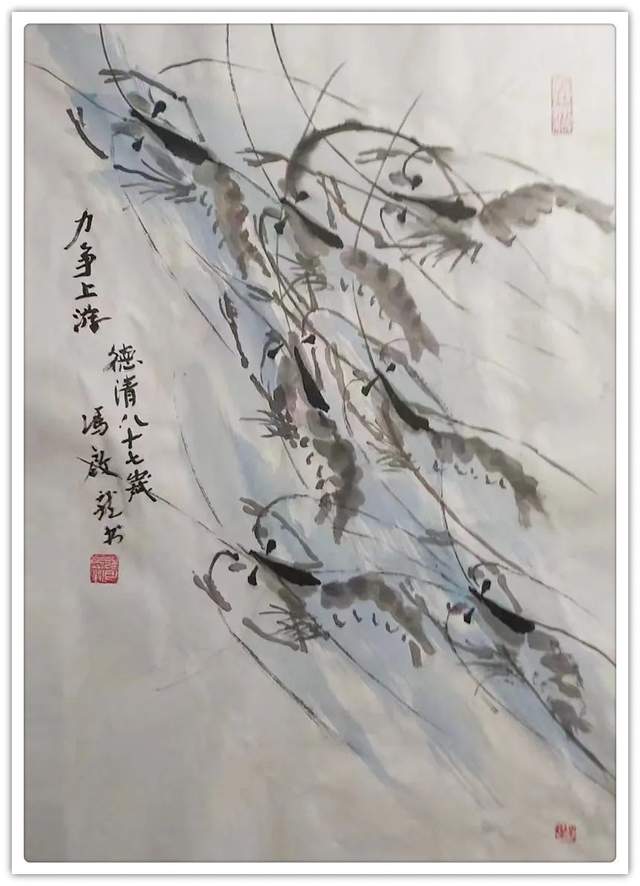 力争上游
德清八十七岁
冯启龙书